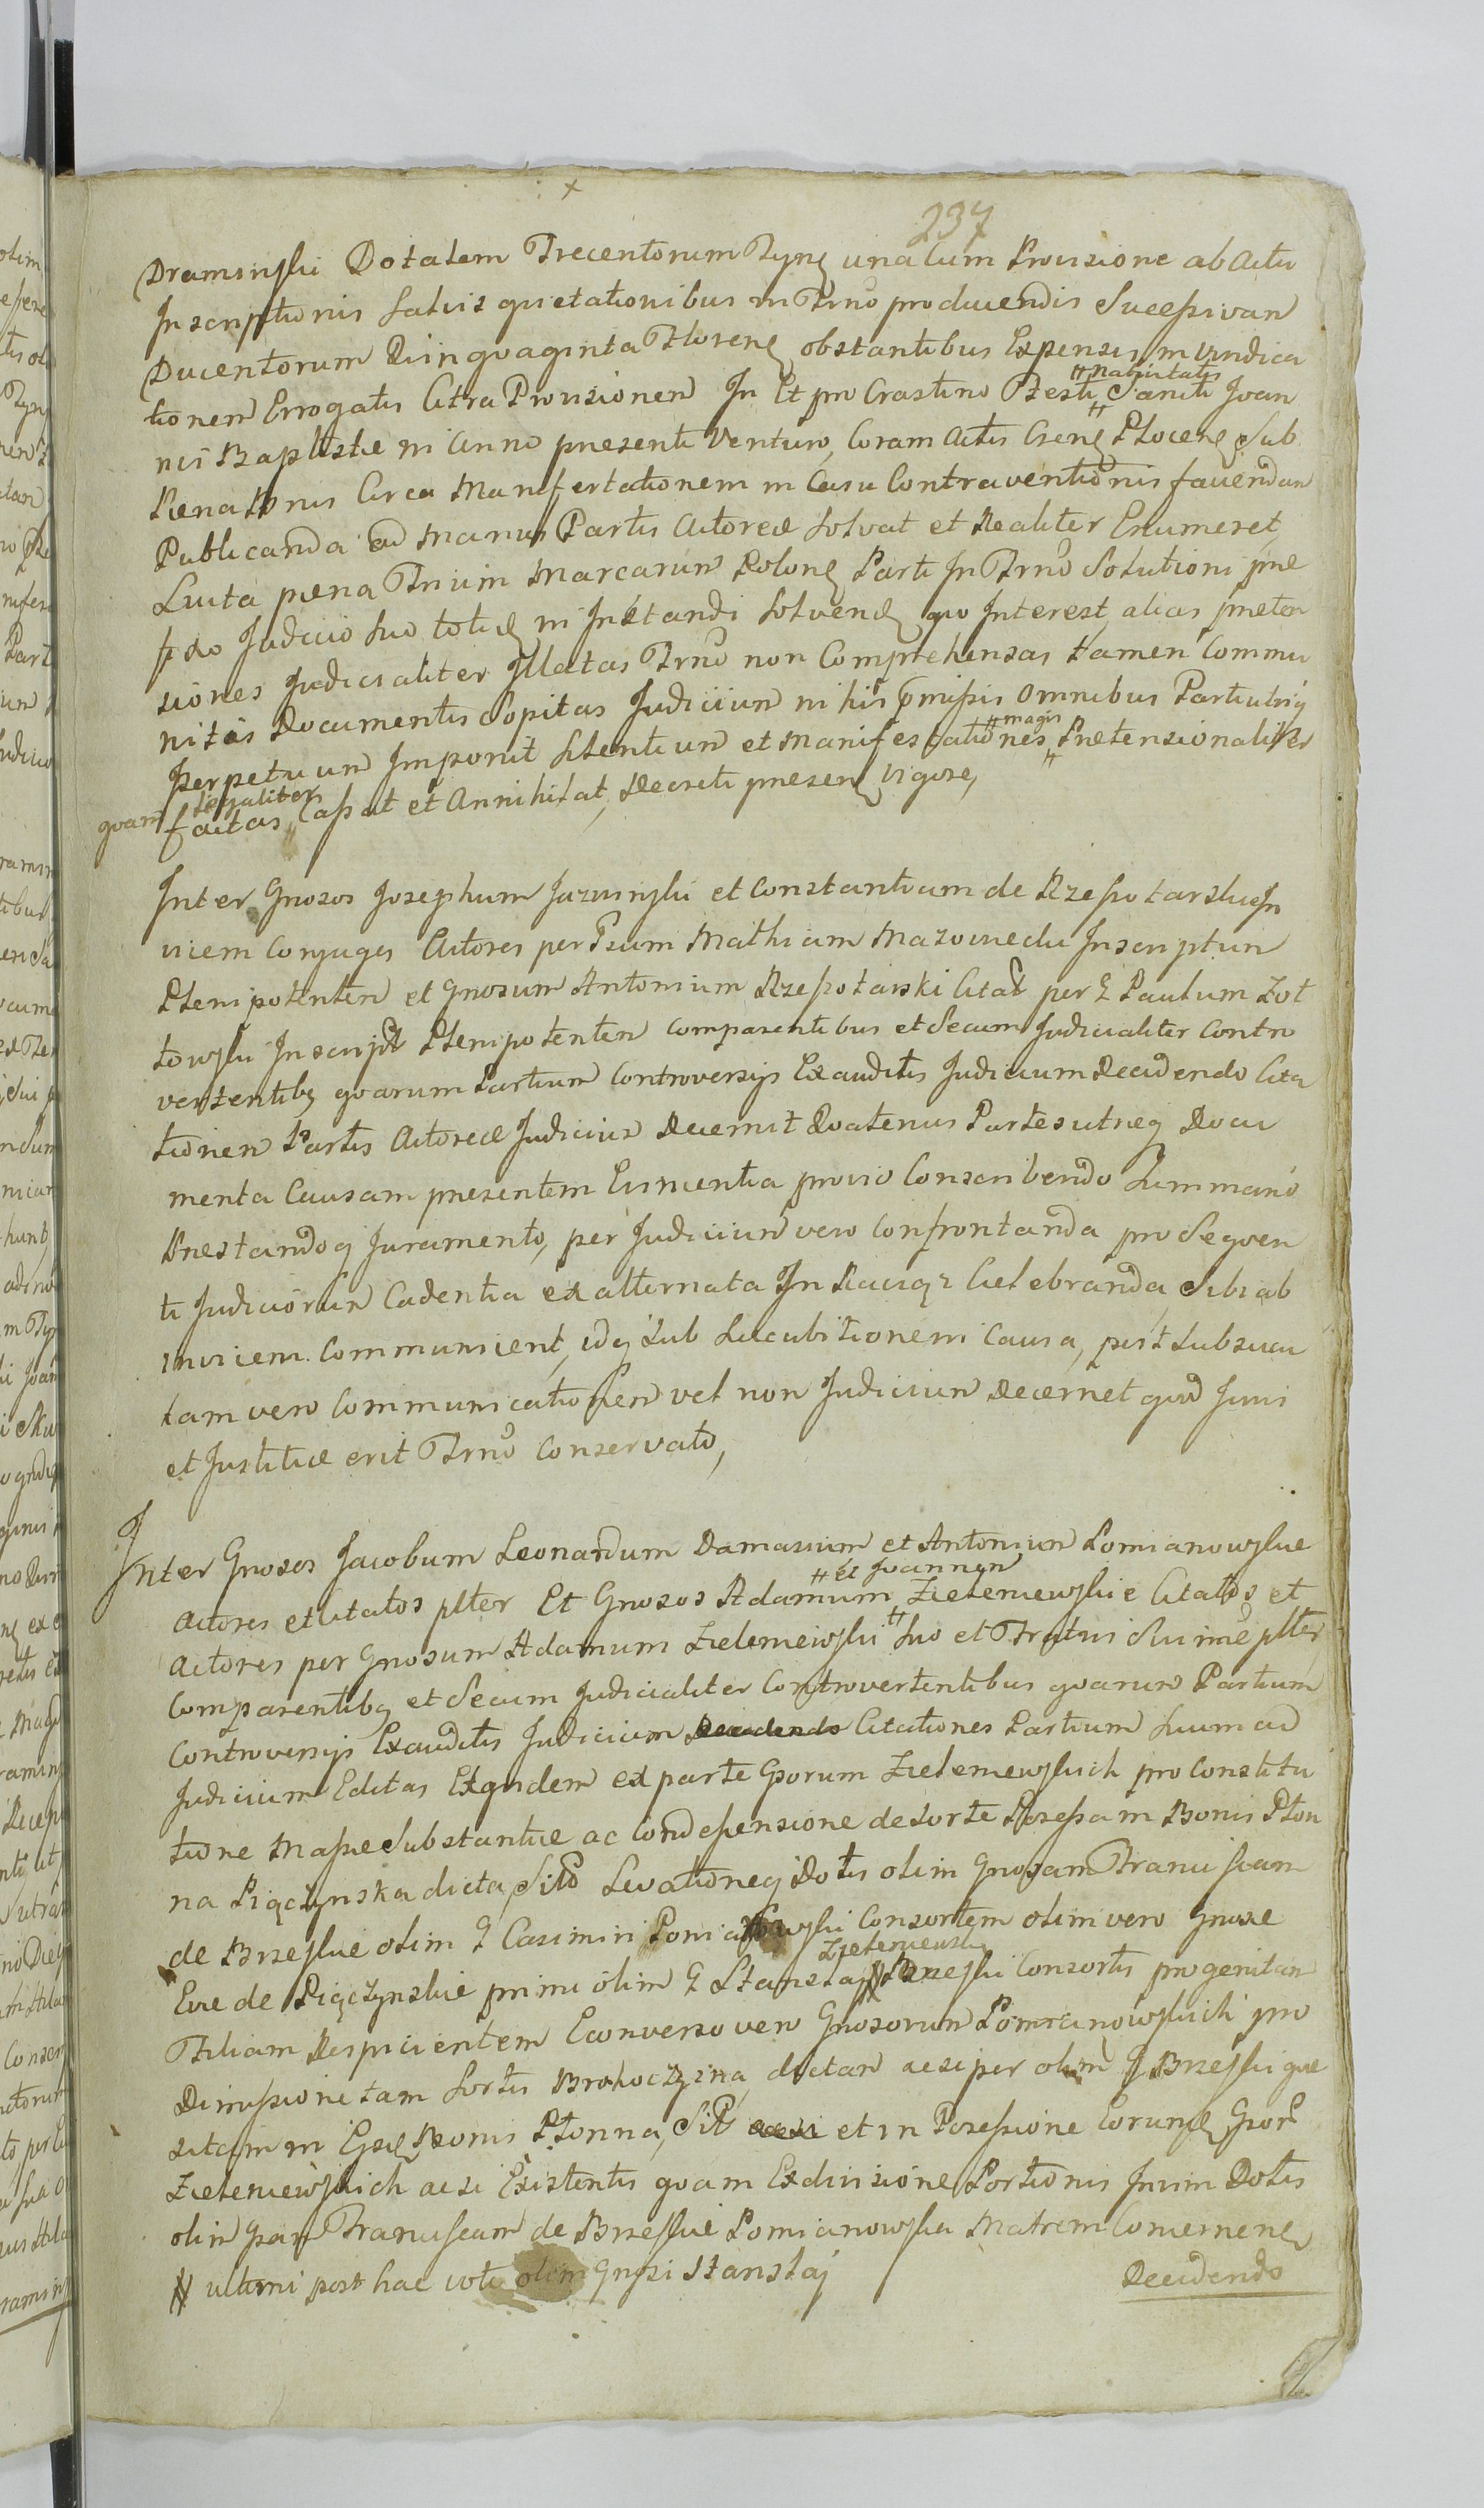 237
Dramiński Dotalem Trecentorum Tynę una Cum Provisione ab Actu
Inscriptionis Salvis quietationibus in Trno producendis Sucessivam
Ducentorum Quinquaginta Florenę obstantibus Expensis in vindica
tionem Errogatis Citra Provisionem In Et pro Crastino Festi Nativitatis Sancti Joan
nis Baptistæ in Anno presenti Venturo, Coram Actis Csenę Plocenę Sub
Pæna Bnis Circa Manifestationem in Casu Contraventionis favendam
Publicanda ad Manus Partis Actoreæ Solvat et Realiter Enumeret
Luita pæna Trium Marcarum Polonę Parti In Trno Solutioni præ
fixo Judicio Suo totię in Instandi Solvendę quo Interest, alias præten
siones Judicialiter Illatas Trno non Comprehensas tamen Commu
nitas Documentis Sopitas Judicium in his pmissis Omnibus Partiubsq
perpetuum Imponit Silentium et Manifestationes magis Prætensionaliter
quam legaliter factas Cassat et Annihilat, Decreti presenę vigore,
Inter Gnosos Josephum Jazwinski et Constantiam de Rzeszotarskie In
vicem Conjuges Actores per Fsum Mathiam Mazowiecki Inscriptum
Plenipotentem et Gnosum Antonium Rzeszotarski Citat per G Paulum Zot
towski Inscript Plenipotentem Comparentibus et Secum Judicialiter Contro
vertentibq quarum Partium Controversijs Exauditis Judicium Decidendo Cita
tionem Partis Actoreæ Judicium Decernit Quatenus Partes utreq Docu
menta Causam presentem Cirnentia provio Conscribendo Summario
Prestandoq Juramento, per Judicium vero Confrontanda pro Sequen
ti Judiciorum Cadentia ex alternata In Raciąż Celebranda, Sibi ab
invicem Communicent, idq Sub Succubitione in Causa, post Subsecu
tam vero Communicationem vel non Judicium Decernet quod Juris
et Justitiæ erit Trno Conservato,
Inter Gnosos Jacobum Leonardum Damasium et Antonium Pomianowskie
Actores et Citatos plter Et Gnosos Adamum et Joannem Zieleniewskie Citatos et
Actores per Gnosum Adamum Zieleniewski Suo et Fratris Sui nine plter
Comparentibq et Secum Judicialiter Controvertentibus quarum Partium
Controversijs Exauditis Judicium Decidendo Citationes Partium Suum ad
Judicium Editas Exquidem ex parte Gsorum Zieleniewskich pro Constitu
tione Massæ Substantiæ ac Condescensione de Sorte Possessa in Bonis Płon
na Pięczynska dicta, Sitt Levationeq Dotis olim Gnosam Franciscam
de Brzeskie olim G Casimiri Pomianowski Consortem olim vero Gnosæ
Evæ de Pięczynskie primi olim G Stanislaj Zieleniewski Brzeski Consortis progenitam
Filiam Respicientem Econverso vero Gnosorum Pomianowskich pro
Dimissione tam Sortis Brokoczyzna dictam acsi per olim G Brzeski que
sitam in Ejsdę Bonis Płonna, Sitt acsi et in Possessione Eorundę Gsor
Zieleniewskich acsi Existentis quam Exdivisione Portionis Jurium Dotis
olim Gsam Franciscam de Brzeskie Pomianowska Matrem Concernenę
ultimi post hac voti olim Gnosi Stanslaj
Decidendo